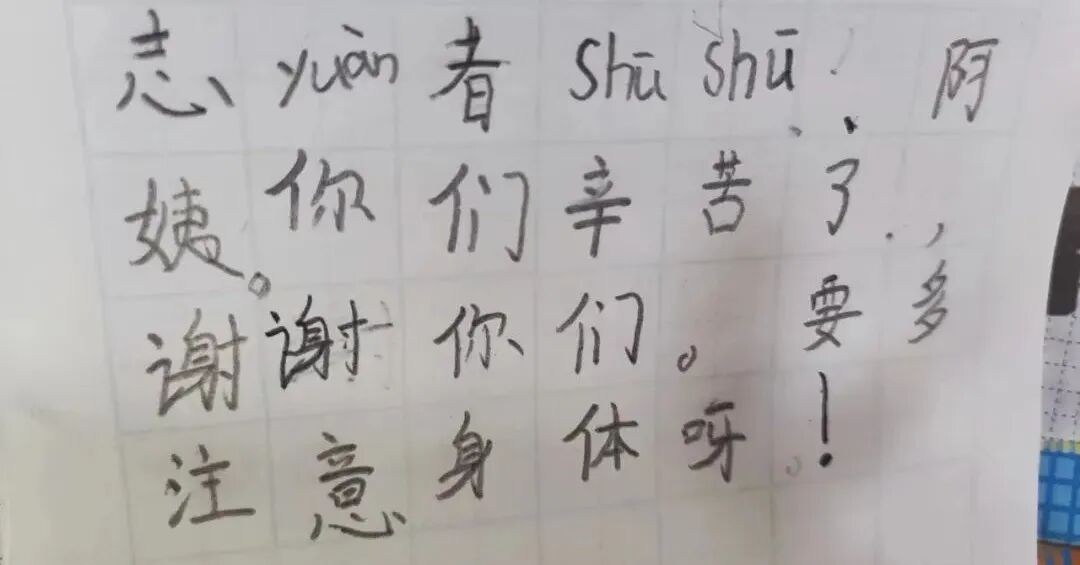 志yuàn者shūshū、阿
姨。你们辛苦了，
谢谢你们。要多
注意身体呀！